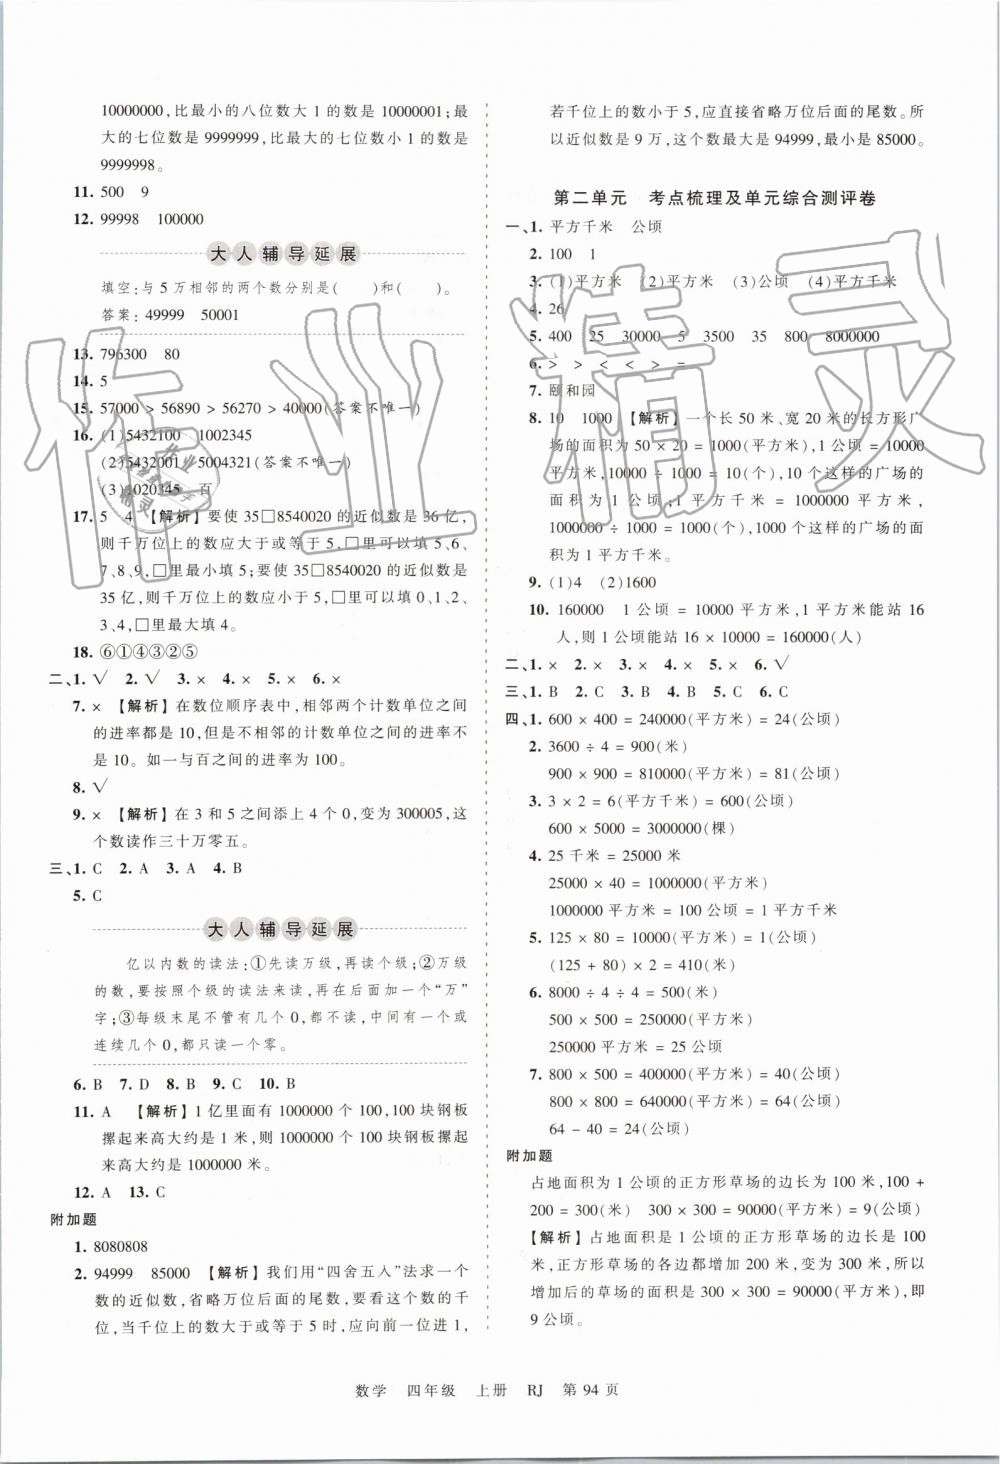 10000000,比最小的八位数大 1 的数是 10000001;最
大的七位数是 9999999,比最大的七位数小 1 的数是
9999998。
11. 500　9
12. 99998　100000
大人辅导延展
填空:与 5 万相邻的两个数分别是(　　)和(　　)。
答案:49999　50001
13. 796300　80
14. 5
15. 57000 > 56890 > 56270 > 40000(答案不唯一)
16. (1)5432100　1002345
(2)5432001　5004321(答案不唯一)
(3)1020345　百
17. 5　4　【解析】要使 35□8540020 的近似数是 36 亿,
则千万位上的数应大于或等于 5,□里可以填 5、6、
7、8、9,□里最小填 5;要使 35□8540020 的近似数是
35 亿,则千万位上的数应小于 5,□里可以填 0、1、2、
3、4,□里最大填 4。
18. ⑥①④③②⑤
二、1. √　2. √　3. ×　4. ×　5. ×　6. ×
7. ×　【解析】在数位顺序表中,相邻两个计数单位之间
的进率都是 10,但是不相邻的计数单位之间的进率不
是 10。如一与百之间的进率为 100。
8. √
9. ×　【解析】在 3 和 5 之间添上 4 个 0,变为 300005,这
个数读作三十万零五。
三、1. C　2. A　3. A　4. B
5. C
大人辅导延展
亿以内数的读法:①先读万级,再读个级;②万级
的数,要按照个级的读法来读,再在后面加一个“万”
字;③每级末尾不管有几个 0,都不读,中间有一个或
连续几个 0,都只读一个零。
6. B　7. D　8. B　9. C　10. B
11. A　【解析】1 亿里面有 1000000 个 100,100 块钢板
摞起来高大约是 1 米,则 1000000 个 100 块钢板摞起
来高大约是 1000000 米。
12. A　13. C
附加题
1. 8080808
2. 94999　85000　【解析】我们用“四舍五入”法求一个
数的近似数,省略万位后面的尾数,要看这个数的千
位,当千位上的数大于或等于 5 时,应向前一位进 1,
若千位上的数小于 5,应直接省略万位后面的尾数。所
以近似数是 9 万,这个数最大是 94999,最小是 85000。
第二单元　考点梳理及单元综合测评卷
一、1. 平方千米　公顷
2. 100　1
3. (1)平方米　(2)平方米　(3)公顷　(4)平方千米
4. 26
5. 400　25　30000　5　3500　35　800　8000000
6. >　>　<　<　>　=
7. 颐和园
8. 10　1000　【解析】一个长 50 米、宽 20 米的长方形广
场的面积为 50 × 20 = 1000(平方米),1 公顷 = 10000
平方米,10000 ÷ 1000 = 10(个),10 个这样的广场的
面积为 1 公顷;1 平方千米 = 1000000 平方米,
1000000 ÷ 1000 = 1000(个),1000 个这样的广场的面
积为 1 平方千米。
9. (1)4　(2)1600
10. 160000　1 公顷 = 10000 平方米,1 平方米能站 16
人,则 1 公顷能站 16 × 10000 = 160000(人)
二、1. ×　2. ×　3. ×　4. ×　5. ×　6. √
三、1. B　2. C　3. B　4. C　5. C　6. C
四、1. 600 × 400 = 240000(平方米) = 24(公顷)
2. 3600 ÷ 4 = 900(米)
900 × 900 = 810000(平方米) = 81(公顷)
3. 3 × 2 = 6(平方千米) = 600(公顷)
600 × 5000 = 3000000(棵)
4. 25 千米 = 25000 米
25000 × 40 = 1000000(平方米)
1000000 平方米 = 100 公顷 = 1 平方千米
5. 125 × 80 = 10000(平方米) = 1(公顷)
(125 + 80) × 2 = 410(米)
6. 8000 ÷ 4 ÷ 4 = 500(米)
500 × 500 = 250000(平方米)
250000 平方米 = 25 公顷
7. 800 × 500 = 400000(平方米) = 40(公顷)
800 × 800 = 640000(平方米) = 64(公顷)
64 - 40 = 24(公顷)
附加题
占地面积为 1 公顷的正方形草场的边长为 100 米,100 +
200 = 300(米)　300 × 300 = 90000(平方米) = 9(公顷)
【解析】占地面积是 1 公顷的正方形草场的边长是 100
米,正方形草场的各边都增加 200 米,变为 300 米,所以
增加后的草场的面积是 300 × 300 = 90000(平方米),即
9 公顷。
数学　四年级　上册　RJ　第 94 页
作业精灵